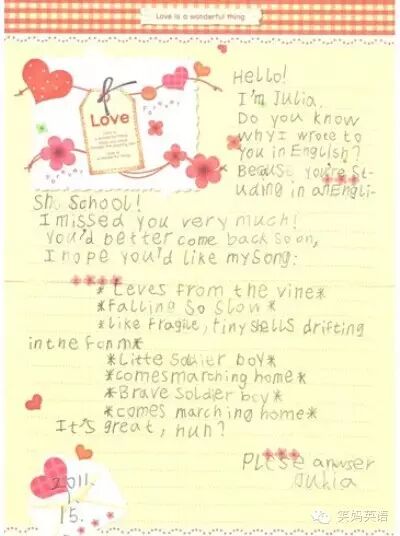 Love is a wonderful thing
Hello!
I'm Julia.
Do you know
why I wrote to
you in English?
Becaus you're st-
uding in an Engli-
Love
Sh School!
I missed you very much!
You'd better come back soon,
I hope you'd like my song:
*Leves from the vine*
*Falling So Slow*
*like Fragile, tiny shells drifting
in the Fonm*
*Litte Soldier boy*
*comes marching home*
*Brave Soldier boy*
*comes marching home*
It's great, huh?
Plese answer
Julia
2011.
1.
15.
笑妈英语